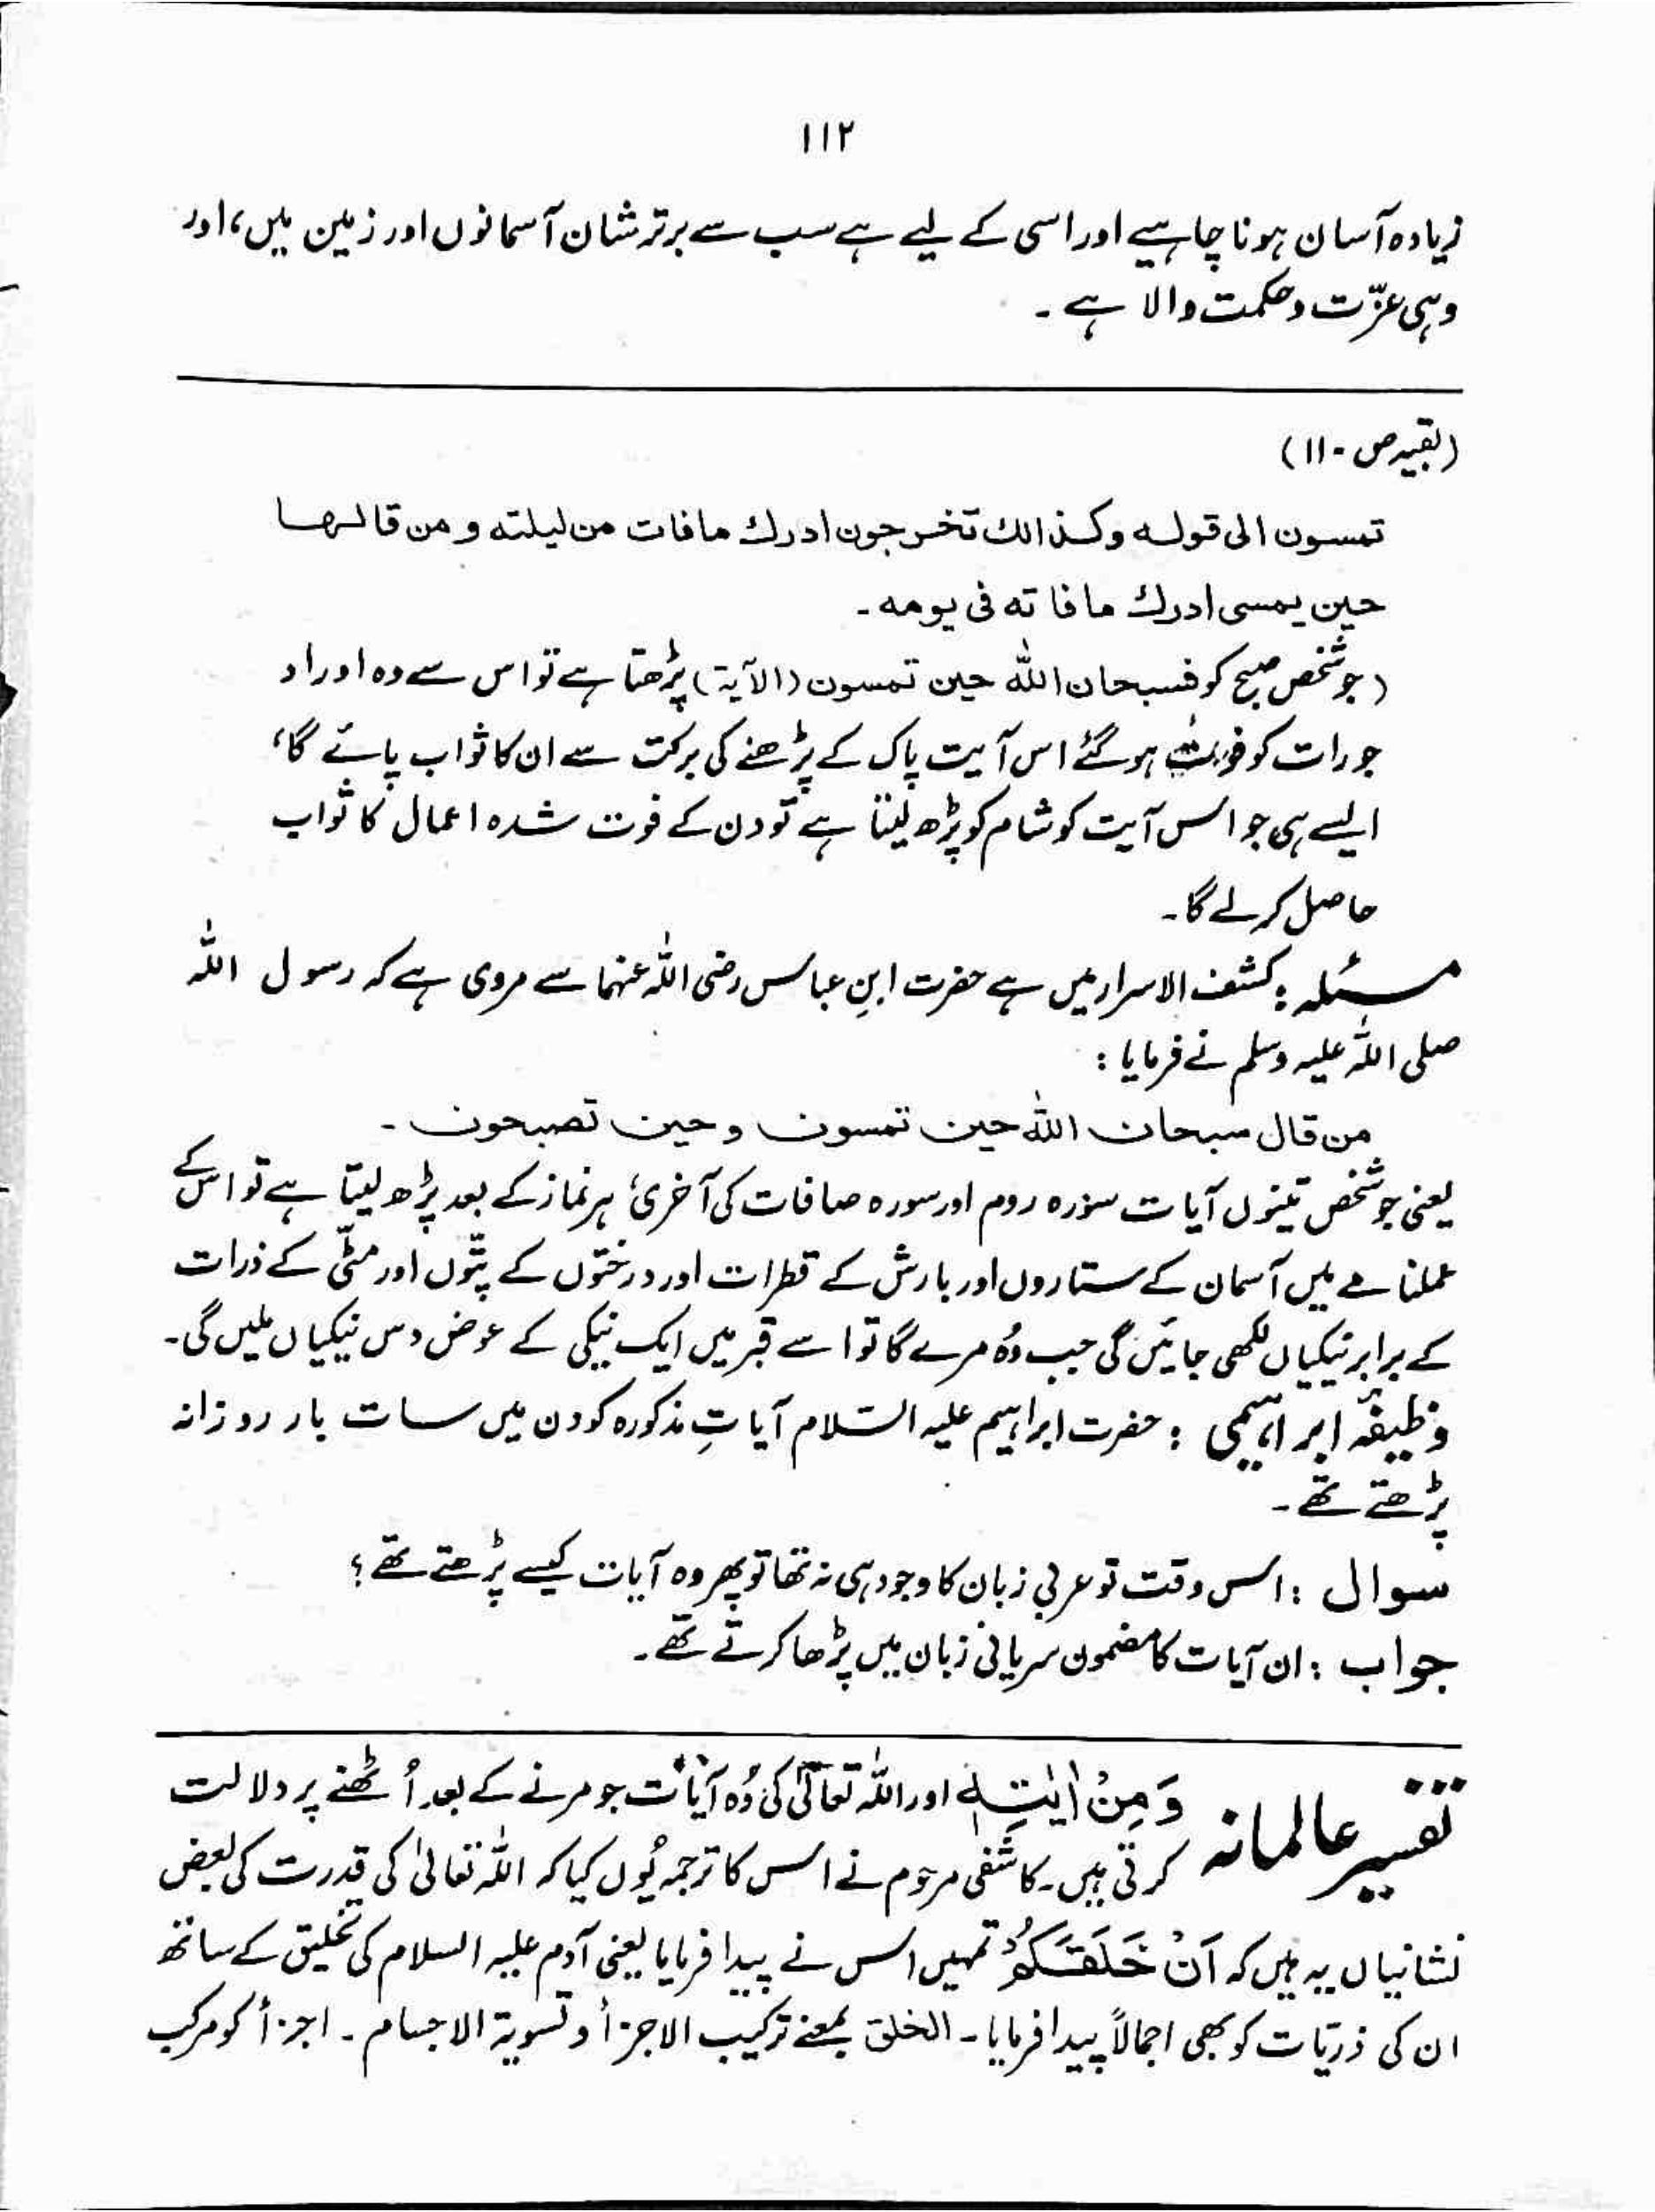 ۱۱۲
زیادہ آسان ہونا چاہیے اور اسی کے لیے ہے سب سے برتر شان آسمانوں اور زمین میں، اور
وہی عزّت و حکمت والا ہے ۔
(بقیہ ص ۱۱۰)
تمسون الی قولہ وکذالك تخرجون ادرك ما فات من لیلتہ و من قالھا
حین یمسی ادرك ما فاتہ فی یومہ ۔
(جو شخص صبح کو فسبحان اللہ حین تمسون (الآیۃ) پڑھتا ہے تو اس سے وہ اوراد
جو رات کو فوت ہو گئے اس آیت پاک کے پڑھنے کی برکت سے ان کا ثواب پائے گا،
ایسے ہی جو اس آیت کو شام کو پڑھ لیتا ہے تو دن کے فوت شدہ اعمال کا ثواب
حاصل کر لے گا ۔
مسئلہ : کشف الاسرار میں ہے حضرت ابنِ عباس رضی اللہ عنہما سے مروی ہے کہ رسول اللہ
صلی اللہ علیہ وسلم نے فرمایا :
من قال سبحان اللہ حین تمسون و حین تصبحون ۔
یعنی جو شخص تینوں آیات سورہ روم اور سورہ صافات کی آخری ہر نماز کے بعد پڑھ لیتا ہے تو اس کے
عملنامے میں آسمان کے ستاروں اور بارش کے قطرات اور درختوں کے پتّوں اور مٹّی کے ذرات
کے برابر نیکیاں لکھی جائیں گی جب وُہ مرے گا تو اسے قبر میں ایک نیکی کے عوض دس نیکیاں ملیں گی۔
وظیفۂ ابراہیمی : حضرت ابراہیم علیہ السّلام آیاتِ مذکورہ کو دن میں سات بار روزانہ
پڑھتے تھے ۔
سوال : اس وقت تو عربی زبان کا وجود ہی نہ تھا تو پھر وہ آیات کیسے پڑھتے تھے ؟
جواب : ان آیات کا مضمون سریانی زبان میں پڑھا کرتے تھے ۔
تفسیر عالمانہ وَمِنْ اٰیٰتِہٖ اور اللہ تعالیٰ کی وُہ آیات جو مرنے کے بعد اُٹھنے پر دلالت
کرتی ہیں۔ کاشفی مرحوم نے اس کا ترجمہ یُوں کیا کہ اللہ تعالیٰ کی قدرت کی بعض
نشانیاں یہ ہیں کہ اَنْ خَلَقَکُمْ تمہیں اس نے پیدا فرمایا یعنی آدم علیہ السلام کی تخلیق کے ساتھ
ان کی ذریّات کو بھی اجمالاً پیدا فرمایا ۔ الخلق بمعنے ترکیب الاجزأ و تسویۃ الاجسام ۔ اجزأ کو مرکب